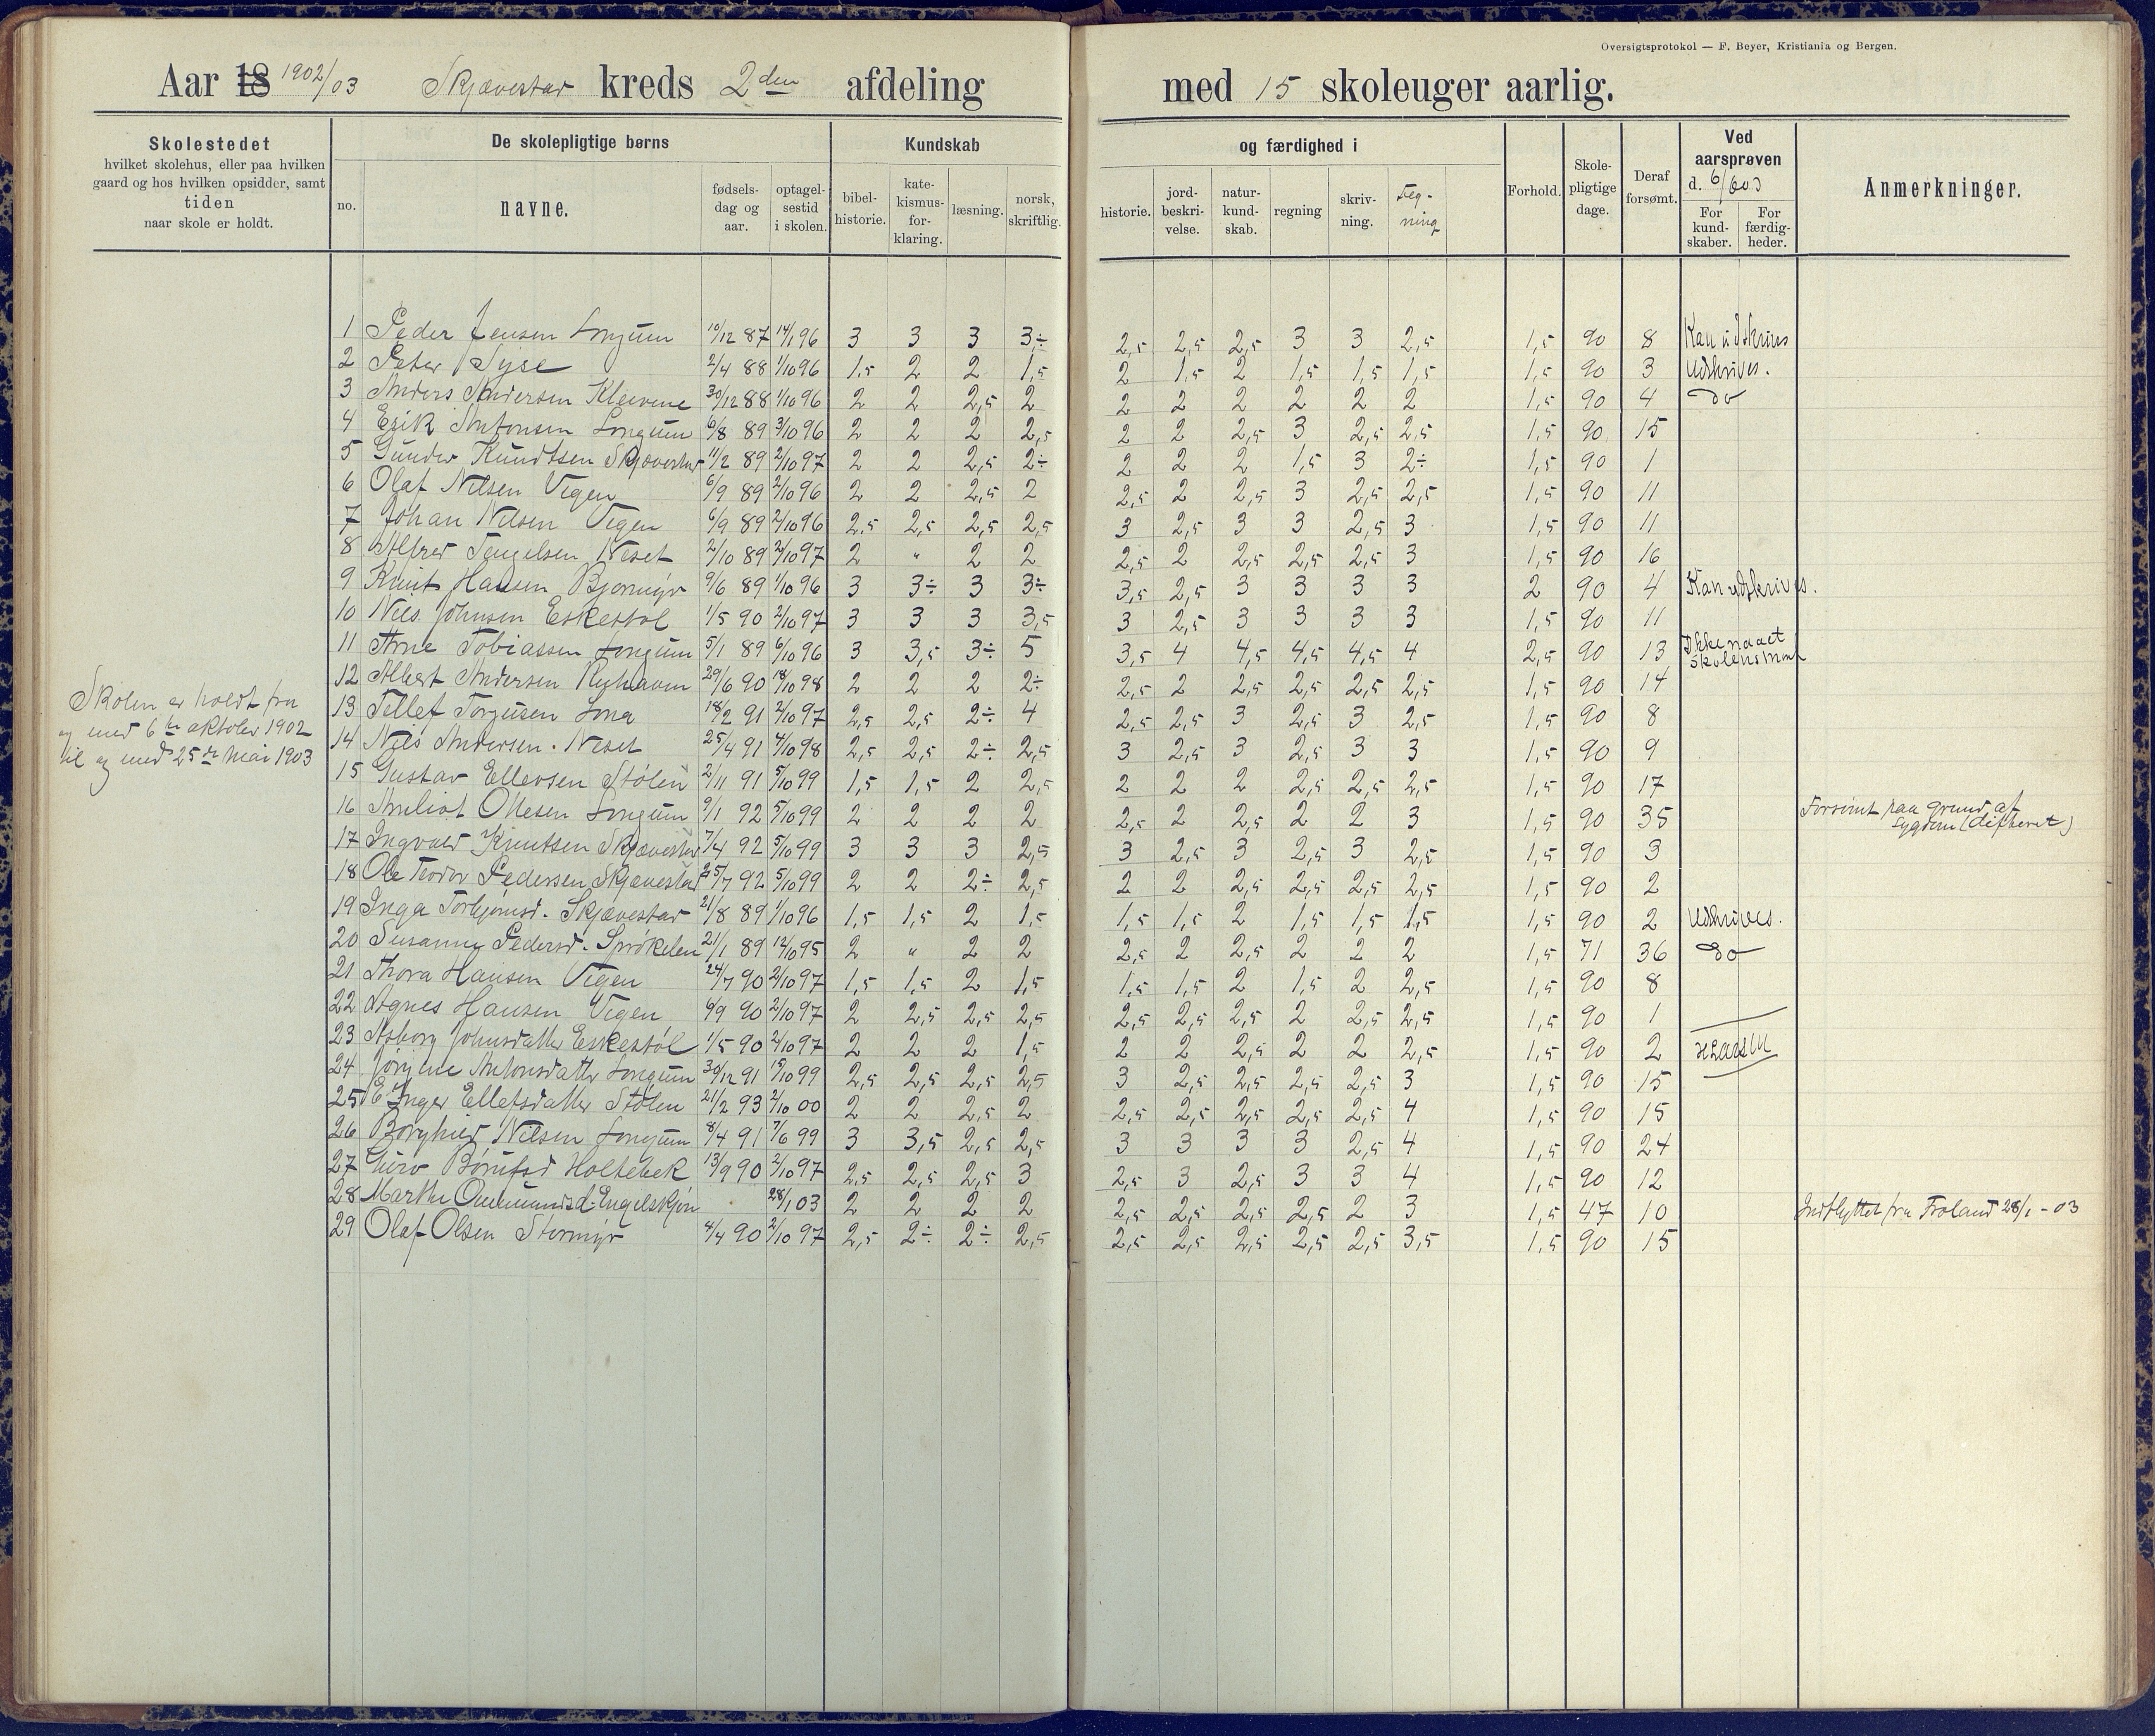 Oversigtsprotokol — F. Beyer, Kristiania og Bergen.
Aar 18 1902/03 Skjævestad kreds 2den afdeling med 15 skoleuger aarlig.
Skolestedet
hvilket skolehus, eller paa hvilken
gaard og hos hvilken opsidder, samt
tiden
naar skole er holdt.
De skolepligtige børns
no.
navne.
fødsels-
dag og
aar.
optagel-
sestid
i skolen.
Kundskab
bibel-
historie.
kate-
kismus-
for-
klaring.
læsning.
norsk,
skriftlig.
og færdighed i
historie.
jord-
beskri-
velse.
natur-
kund-
skab.
regning
skriv-
ning.
Teg-
ning
Forhold.
Skole-
pligtige
dage.
Deraf
forsømt.
Ved
aarsprøven
d. 6/6 03
For
kund-
skaber.
For
færdig-
heder.
Anmerkninger.
1 Peder Jensen Longum 10/12 87 14/1 96 3 3 3 3÷ 2,5 2,5 2,5 3 3 2,5 1,5 90 8 Kan udskrives
2 Peter Syse 2/4 88 1/10 96 1,5 2 2 1,5 2 1,5 2 1,5 1,5 1,5 1,5 90 3 Udskrives.
3 Anders Andersen Kleivene 30/12 88 1/10 96 2 2 2,5 2 2 2 2 2 2 2 1,5 90 4 do
4 Erik Antonsen Longum 6/8 89 3/10 96 2 2 2 2,5 2 2 2,5 3 2,5 2,5 1,5 90 15
5 Gunder Knudtsen Skjævestad 11/2 89 2/10 97 2 2 2,5 2÷ 2 2 2 1,5 3 2÷ 1,5 90 1
6 Olaf Nilsen Vegen 6/9 89 2/10 96 2 2 2,5 2 2,5 2 2,5 3 2,5 2,5 1,5 90 11
7 Johan Nilsen Vegen 6/9 89 2/10 96 2,5 2,5 2,5 2,5 3 2,5 3 3 2,5 3 1,5 90 11
8 Alfred Tengelsen Neset 2/10 89 2/10 97 2 " 2 2 2,5 2 2,5 2,5 2,5 3 1,5 90 16
9 Knut Hansen Bjormyr 9/6 89 1/10 96 3 3÷ 3 3÷ 3,5 2,5 3 3 3 3 2 90 4 Kan udskrives.
10 Nils Johnsen Eskestøl 1/5 90 2/10 97 3 3 3 3,5 3 2,5 3 3 3 3 1,5 90 11
11 Arne Tobiassen Longum 5/1 89 6/10 96 3 3,5 3÷ 5 3,5 4 4,5 4,5 4,5 4 2,5 90 13 Ikke naaet
skolens maal
12 Albert Andersen 29/6 90 18/10 98 2 2 2 2÷ 2,5 2 2,5 2,5 2,5 2,5 1,5 90 14
Skolen er holdt fra
og med 6te oktober 1902
til og med 25de mai 1903
13 Tellef Torjusen Lona 18/2 91 2/10 97 2,5 2,5 2÷ 4 2,5 2,5 3 2,5 3 2,5 1,5 90 8
14 Nils Andersen. Neset 25/4 91 4/10 98 2,5 2,5 2÷ 2,5 3 2,5 3 2,5 3 3 1,5 90 9
15 Gustav Ellevsen Stølen 2/11 91 5/10 99 1,5 1,5 2 2,5 2 2 2 2,5 2,5 2,5 1,5 90 17
16 Olesen Longum 9/1 92 5/10 99 2 2 2 2 2,5 2 2,5 2 2 3 1,5 90 35 Forsømt paa grund af
sygdom (difterit)
17 Ingvald Knutsen Skjævestad 7/4 92 5/10 99 3 3 3 2,5 3 2,5 3 2,5 3 2,5 1,5 90 3
18 Ole Teodor Pedersen Skjævestad 25/7 92 5/10 99 2 2 2÷ 2,5 2 2 2,5 2,5 2,5 2,5 1,5 90 2
19 Inga Torbjørnsd. Skjævestad 21/8 89 1/10 96 1,5 1,5 2 1,5 1,5 1,5 2 1,5 1,5 1,5 1,5 90 2 Udskrives.
20 Susanne Pedersd. Sprøkelen 21/1 89 12/10 95 2 " 2 2 2,5 2 2,5 2 2 2 1,5 71 36 do
21 Thora Hansen Vegen 24/7 90 2/10 97 1,5 1,5 2 1,5 1,5 1,5 2 1,5 2 2,5 1,5 90 8
22 Agnes Hansen Vegen 9/9 90 2/10 97 2 2,5 2,5 2,5 2,5 2,5 2,5 2 2,5 2,5 1,5 90 1
23 Asborg Johnsdatter Eskestøl 1/5 90 2/10 97 2 2 2 1,5 2 2 2,5 2 2 2,5 1,5 90 2
24 Jørgine Antonsdatter Longum 30/12 91 15/10 99 2,5 2,5 2,5 2,5 3 2,5 2,5 2,5 2,5 3 1,5 90 15
25 E Inger Ellefsdatter Stølen 21/2 93 2/10 00 2 2 2,5 2 2,5 2,5 2,5 2,5 2,5 4 1,5 90 15
26 Borghild Nilsen Longum 8/4 91 7/6 99 3 3,5 2,5 2,5 3 3 3 3 2,5 4 1,5 90 24
27 Guro Holtebek 13/9 90 2/10 97 2,5 2,5 2,5 3 2,5 3 2,5 3 3 4 1,5 90 12
28 Marthe Ommundsd. Engelskjøn 28/1 03 2 2 2 2 2,5 2,5 2,5 2,5 2 3 1,5 47 10 Indflyttet fra Froland 28/1 - 03
29 Olaf Olsen Stormyr 4/4 90 2/10 97 2,5 2÷ 2÷ 2,5 2,5 2,5 2,5 2,5 2,5 3,5 1,5 90 15